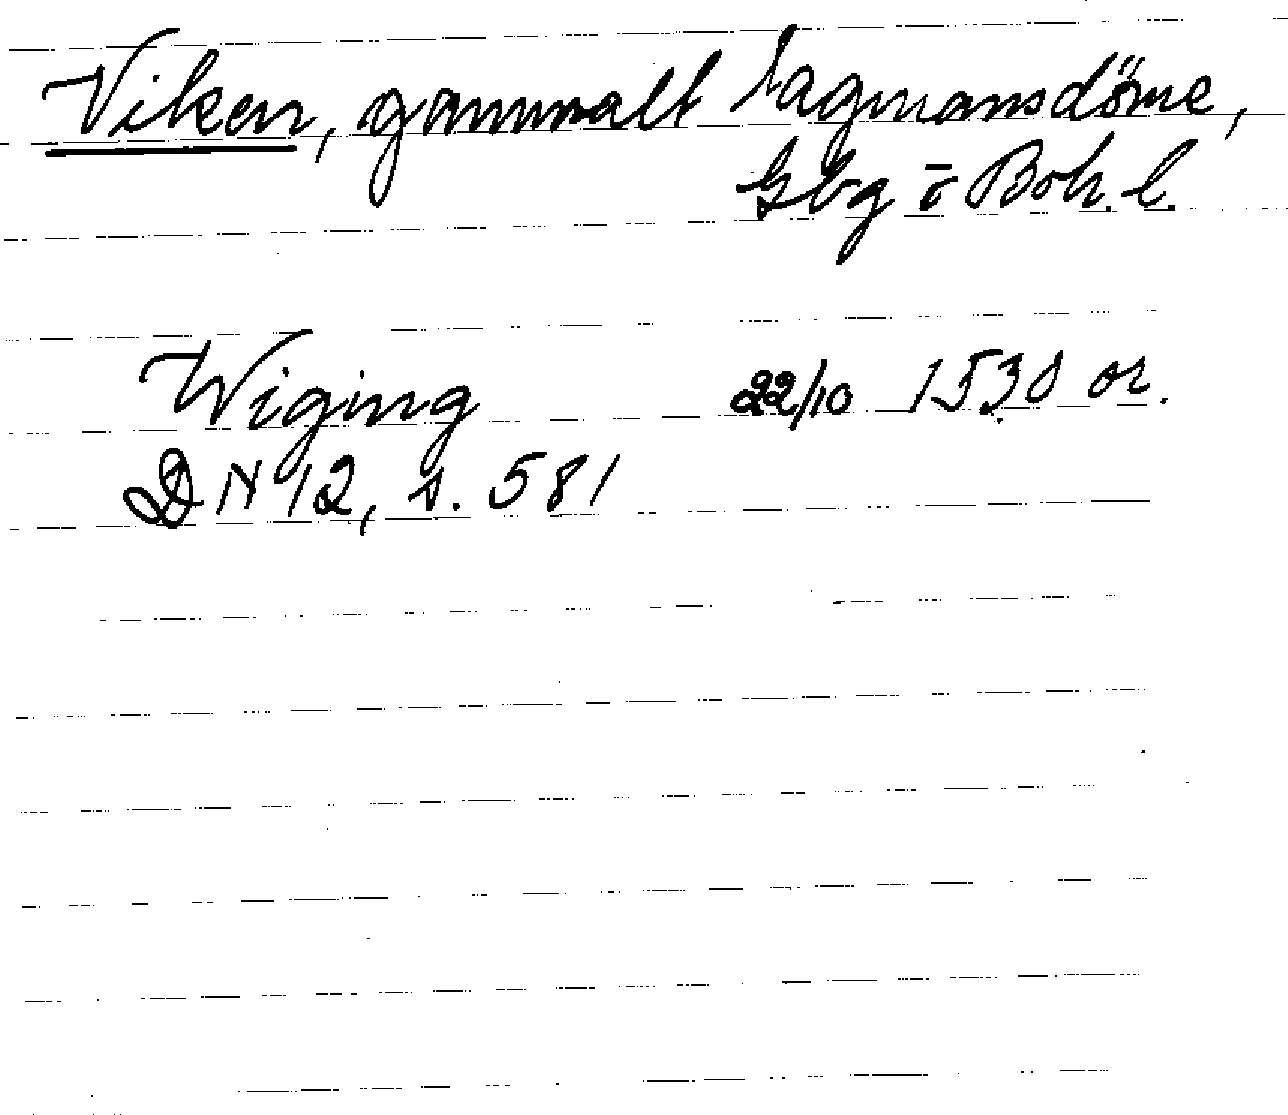 Viken, gammalt lagmansdöme,
Gbg o Boh. l.
Wiging 22/10 1530 or.
DN 12, s. 581